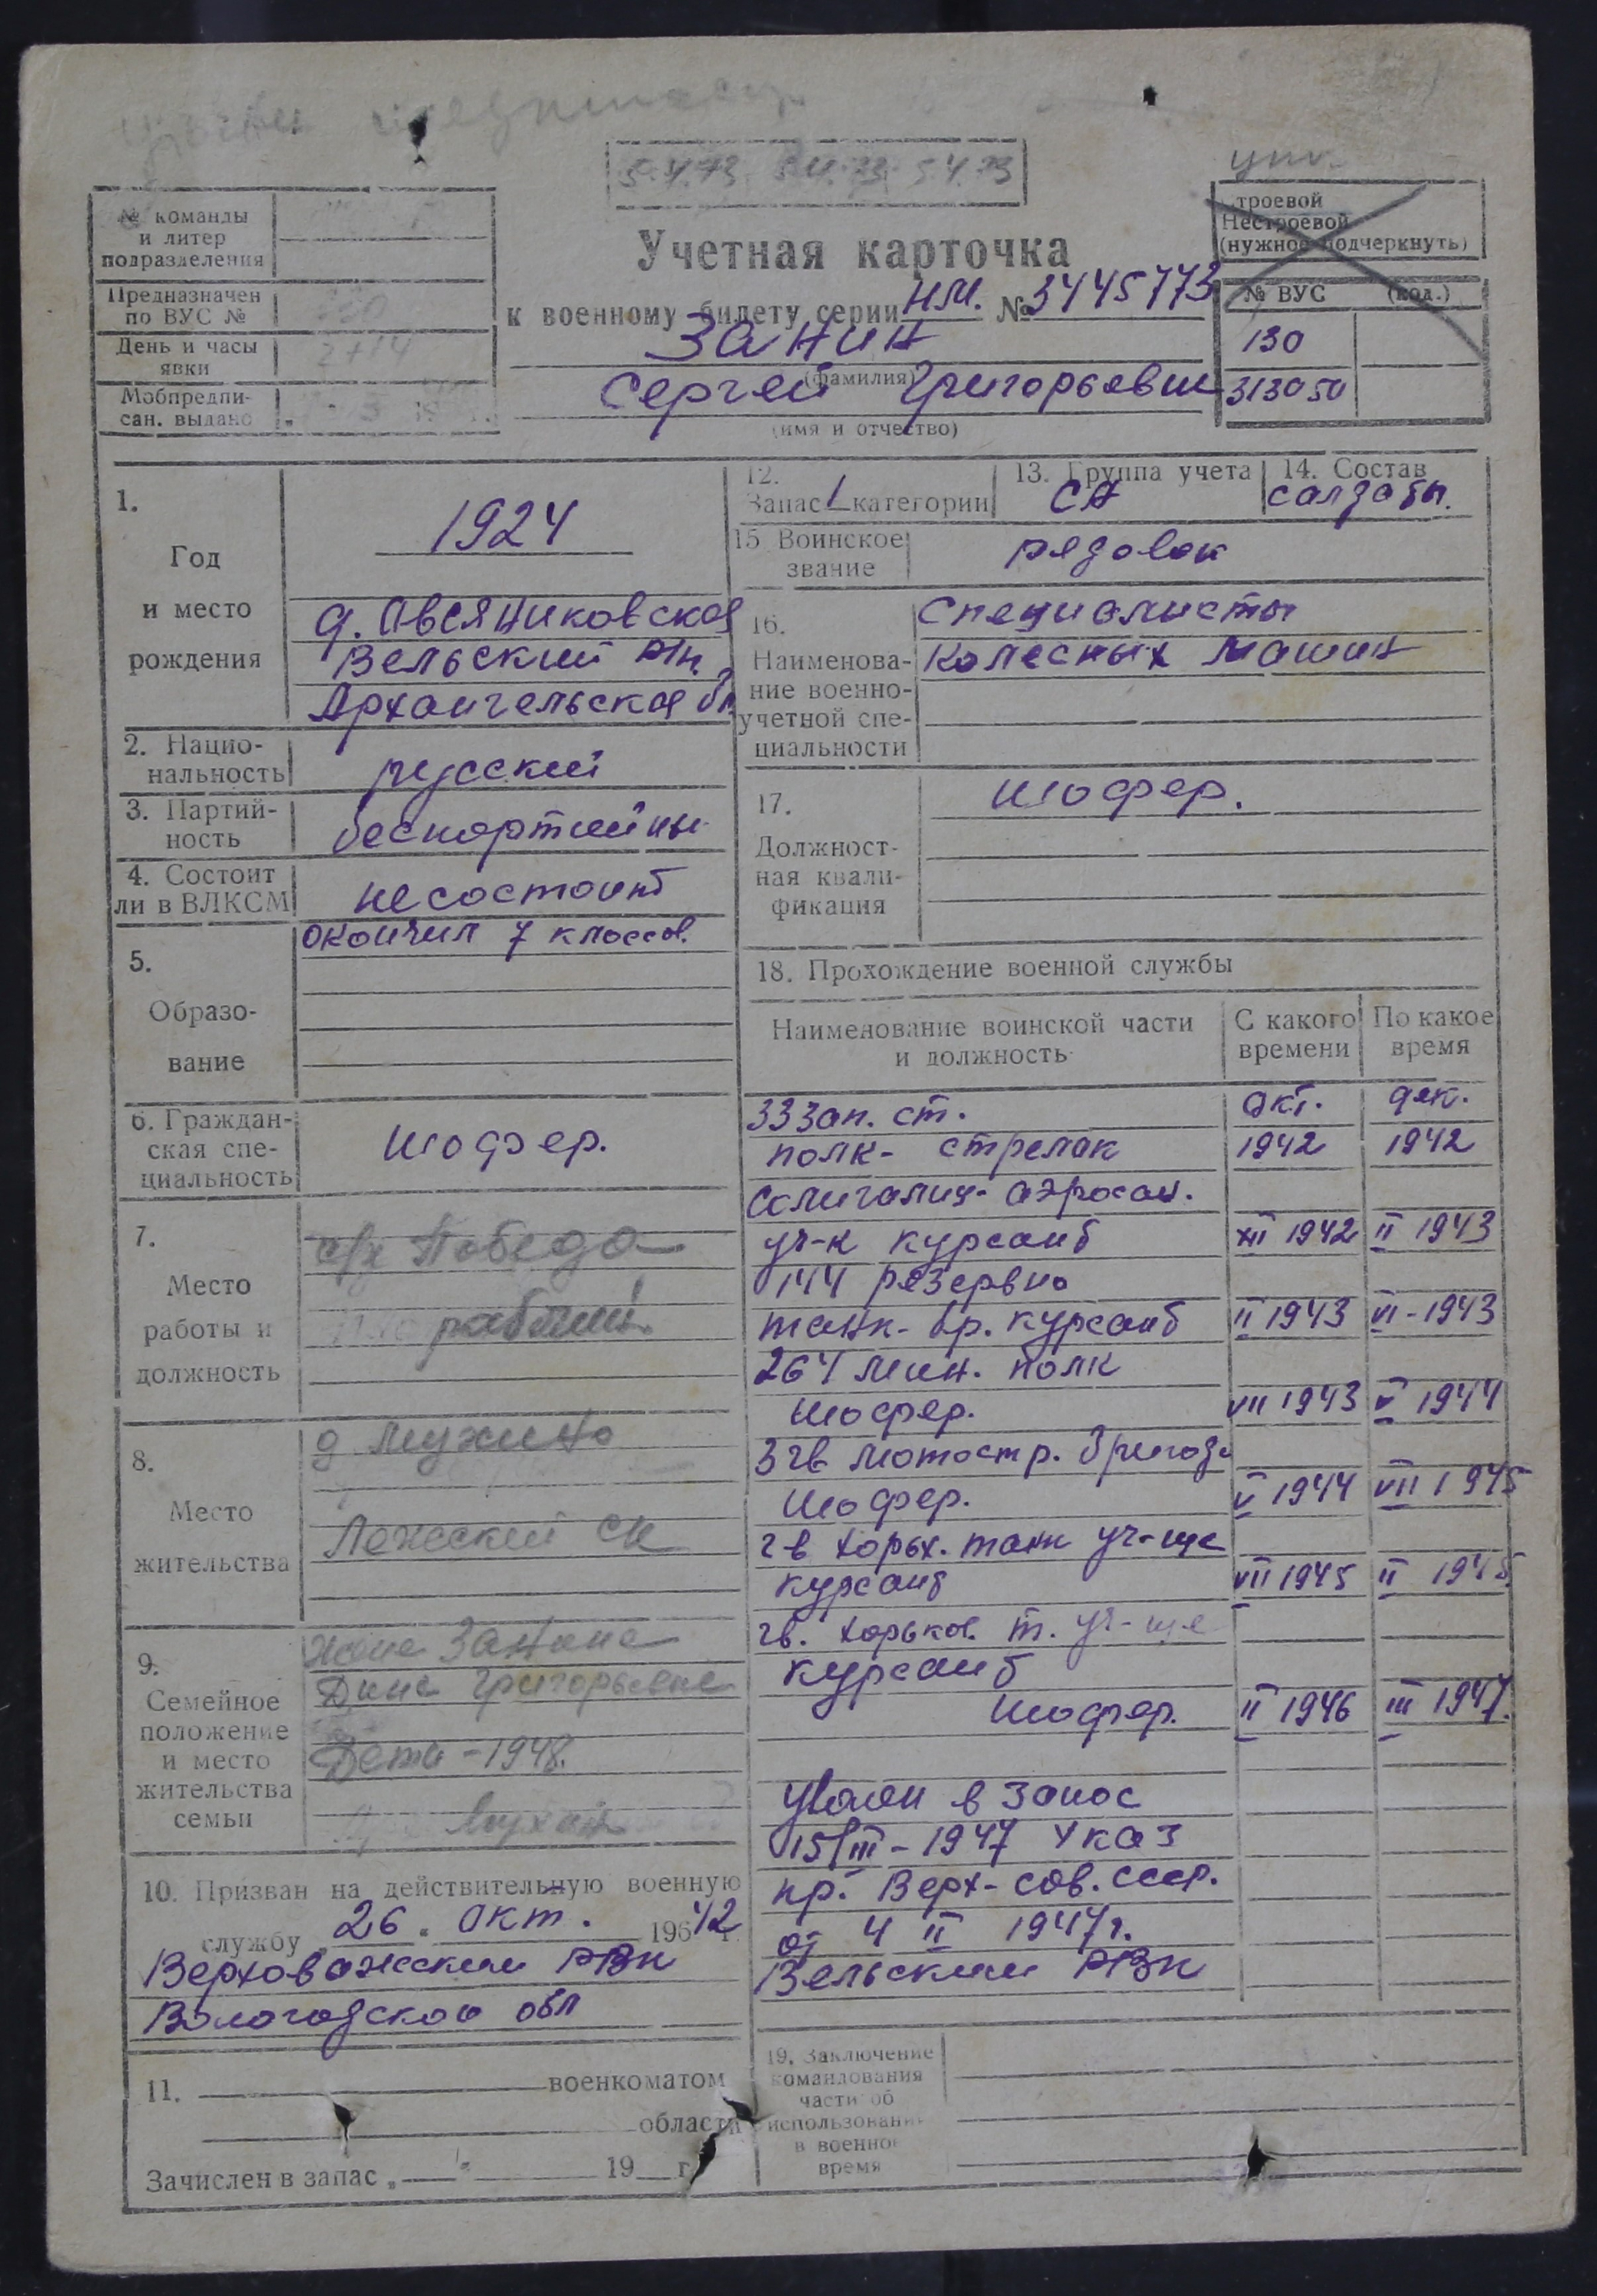 5.4.73 5.4.73 5.4.73
№ команды
и литер
подразделения
Предназначен
по ВУС №
День и часы
явки
Мобпредпи-
сан. выдано
Учетная карточка
к военному билету серии НМ. № 3445773
Занин
(фамилия)
Сергей Григорьевич
(имя и отчество)
троевой
Нестроевой
(нужное подчеркнуть)
№ ВУС (код.)
130
313050
1.
Год
и место
рождения
1924
д. Овсяниковская
Вельский р/н.
Архангельская обл
2. Нацио-
нальность
русский
3. Партий-
ность
беспартийны
4. Состоит
ли в ВЛКСМ
не состоит
5.
Образо-
вание
окончил 7 классов.
6. Граждан-
ская спе-
циальность
шофер.
7.
Место
работы и
должность
с/х Победа
рабочий
8.
Место
жительства
д Мужино
Лежский с/с
9.
Семейное
положение
и место
жительства
семьи
жена Занина
Дина Григорьевна
Дети - 1948.
10. Призван на действительную военную
службу „26„ Окт. 19642 г.
Верховажским РВК
Вологодской обл
11. военкоматом
области
Зачислен в запас „ “ 19 г.
12.
Запас 1 категории
13. Группа учета
СА
14. Состав
солдаты.
15 Воинское
звание
рядовой
16.
Наименова-
ние военно-
учетной спе-
циальности
Специалисты
колесных машин
17.
Должност-
ная квали-
фикация
шофер.
18. Прохождение военной службы
Наименование воинской части
и должность
С какого
времени
По какое
время
33 зап. ст.
окт. дек.
полк- стрелок 1942 1942
Солигалич- аэросан.
уч-к курсант XII 1942 II 1943
144 резервно
танк- бр. курсант II 1943 VI-1943
264 мин. полк
шофер. VII 1943 V 1944
3 гв мотостр. бригада
шофер. V 1944 VII 1945
г-в харьк. танк уч-ще
курсант VII 1945 II 1945
гв. харьков. т. уч-ще
курсант
шофер. II 1946 III 1947.
уволен в запас
15/III-1947 Указ
пр. Верх-сов. ссср.
от 4 II 1947г.
Вельским РВК
19. Заключение
командования
части об
использовании
в военное
время